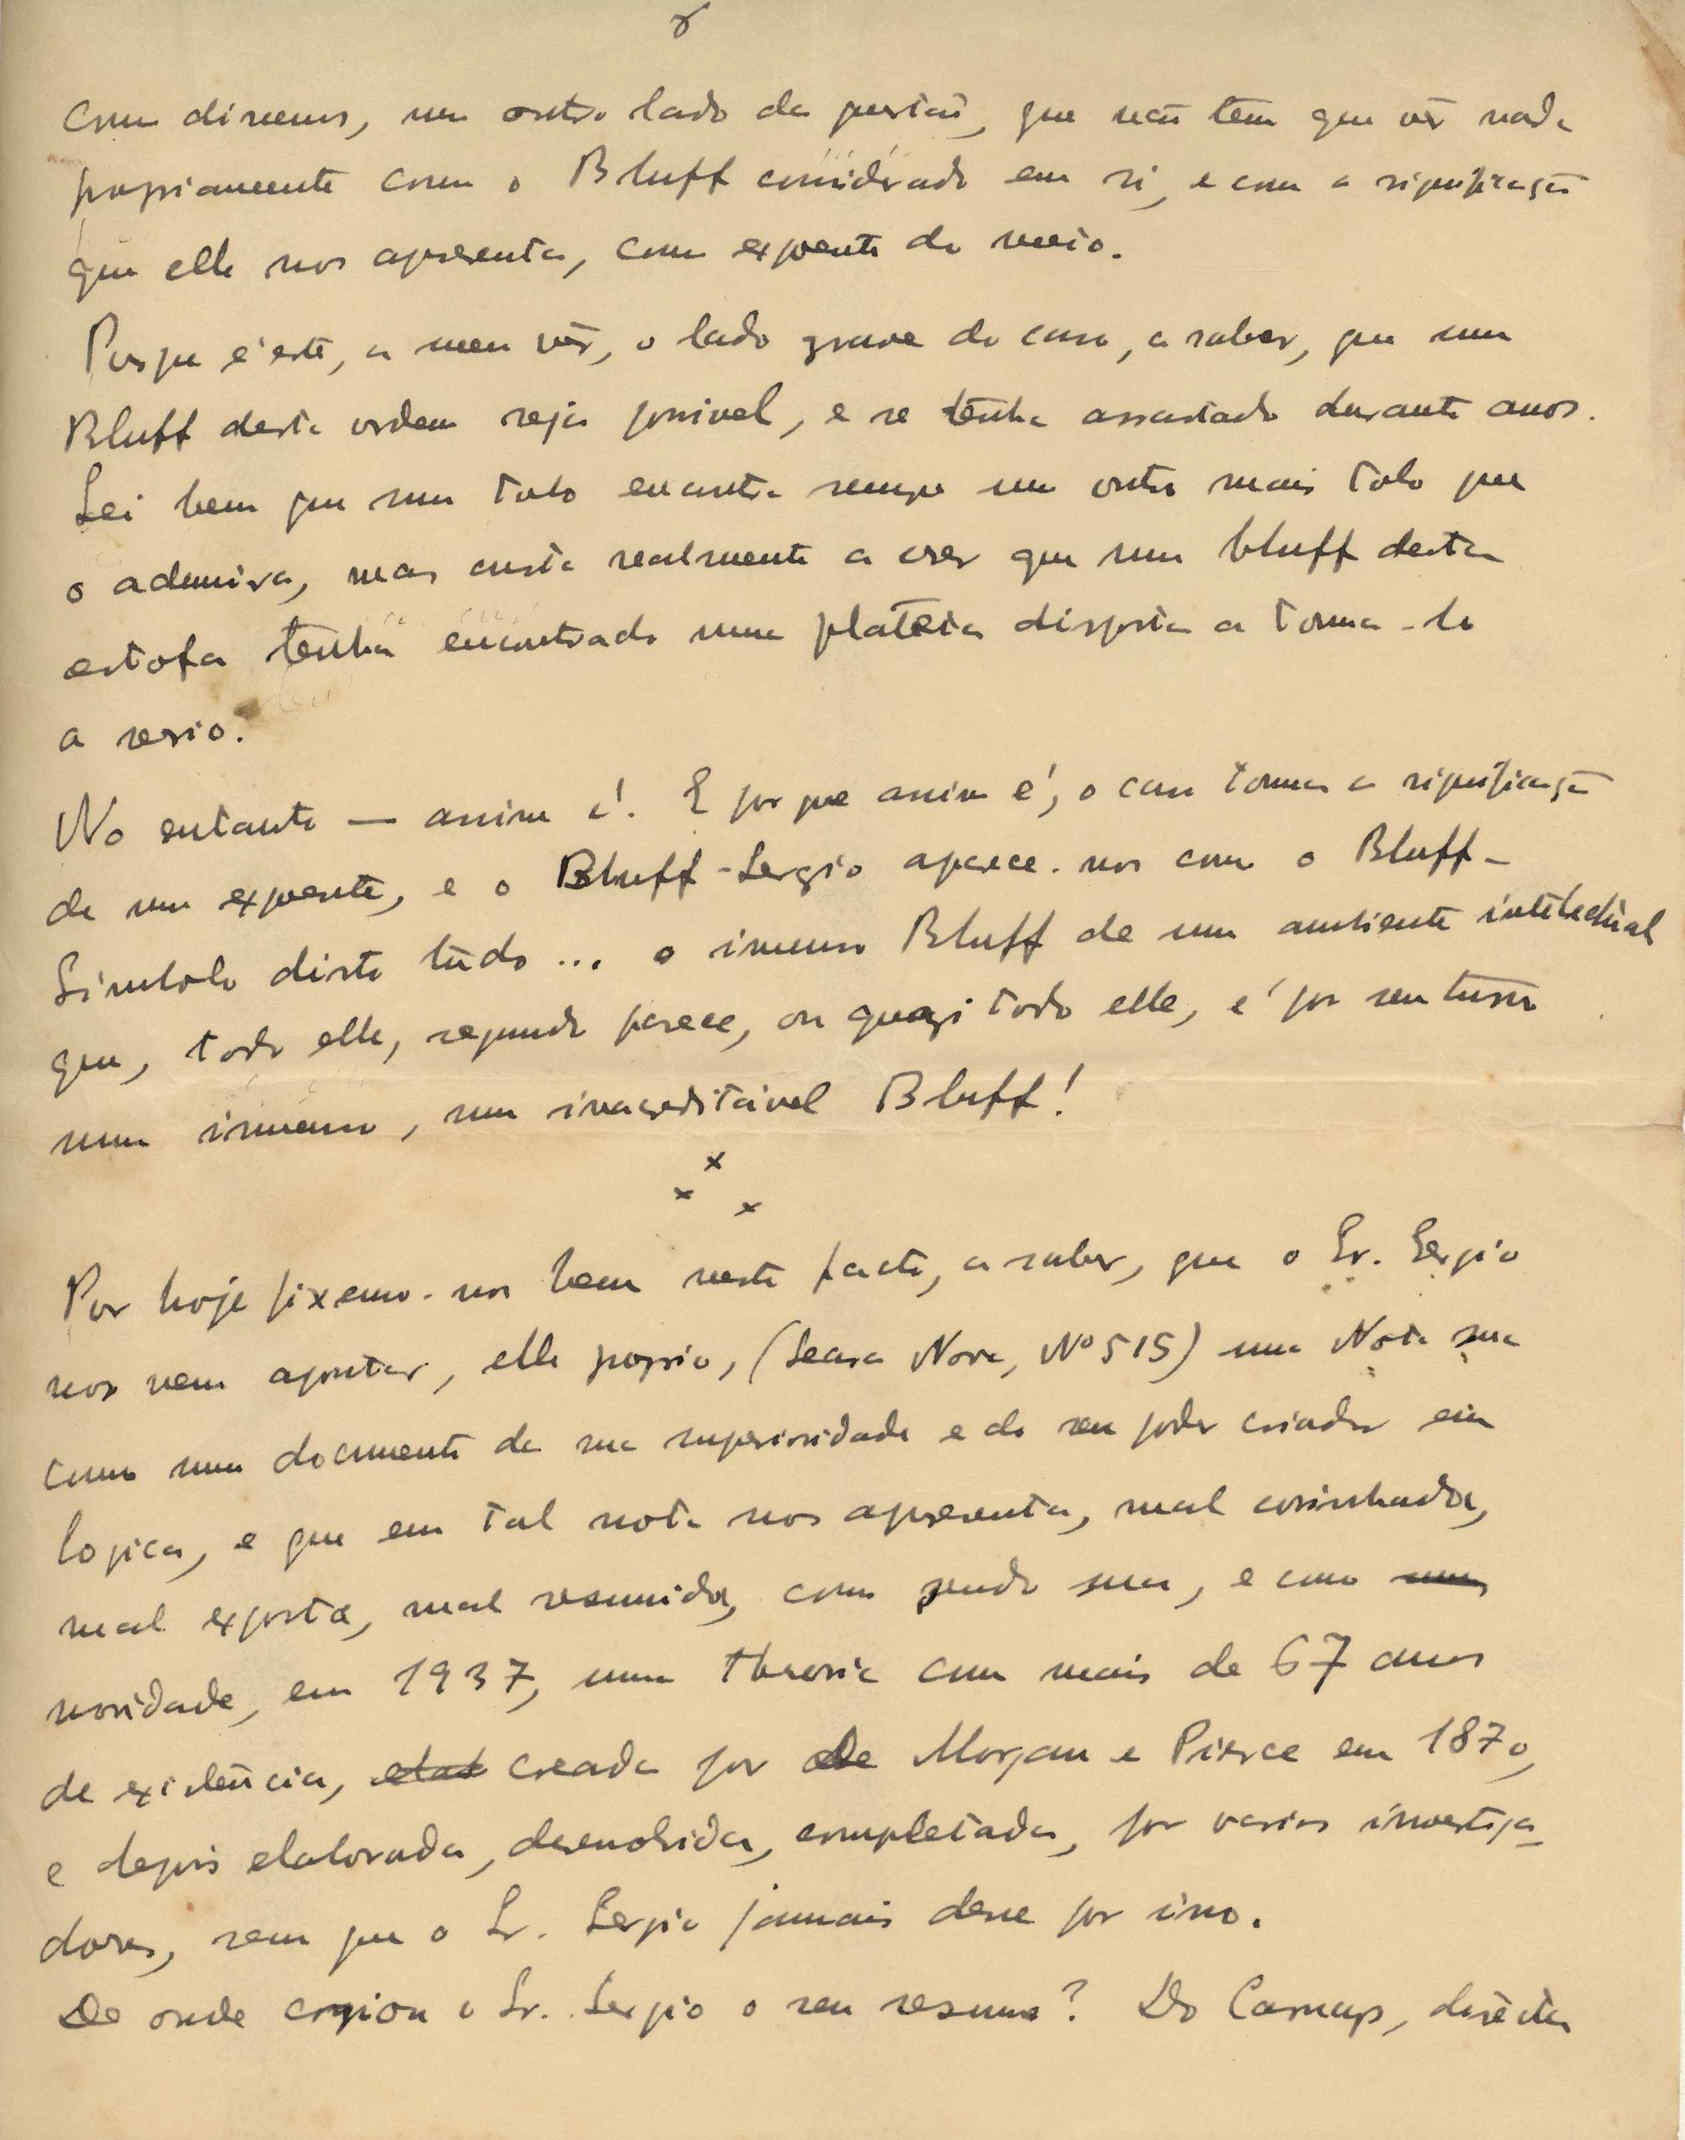 8
como dissemos, um outro lado da questão, que não tem que vêr nada
propriamente com o Bluff considerado em si, e com a significação
que elle nos apresenta, como expoente do meio.
Porque é este, a meu vêr, o lado grave do caso, a saber, que um
Bluff desta ordem seja possivel, e se tenha arrastado durante anos.
Sei bem que um tolo encontra sempre um outro mais tolo que
o admira, mas custa realmente a crer que um bluff desta
estofa tenha encontrado uma plateia disposta a toma-lo
a serio.
No entanto — assim é! E por que assim é, o caso toma a significação
de um expoente, e o Bluff-Sergio aparece-nos como o Bluff-
Simbolo disto tudo ... o imenso Bluff de um ambiente intelectual
que, todo elle, segundo parece, ou quazi todo elle, é por seu turno
um imenso, um inacreditável Bluff!
x x x
Por hoje fixemo-nos bem neste facto, a saber, que o Sr. Sergio
nos vem apontar, elle proprio, (Seara Nova, Nº 515) uma Nota sua
como um documento da sua superioridade e do seu poder criador em
logica, e que em tal nota nos apresenta, mal cosinhada,
mal exposta, mal resumida, como sendo sua, e como
novidade, em 1937, uma theoria com mais de 67 anos
de existência, creada por De Morgan e Pierce em 1870,
e depois elaborada, desenvolvida, completada, por varios investiga-
dores, sem que o Sr. Sergio jamais desse por isso.
De onde copiou o Sr. Sergio o seu resumo? Do Carnap, directa